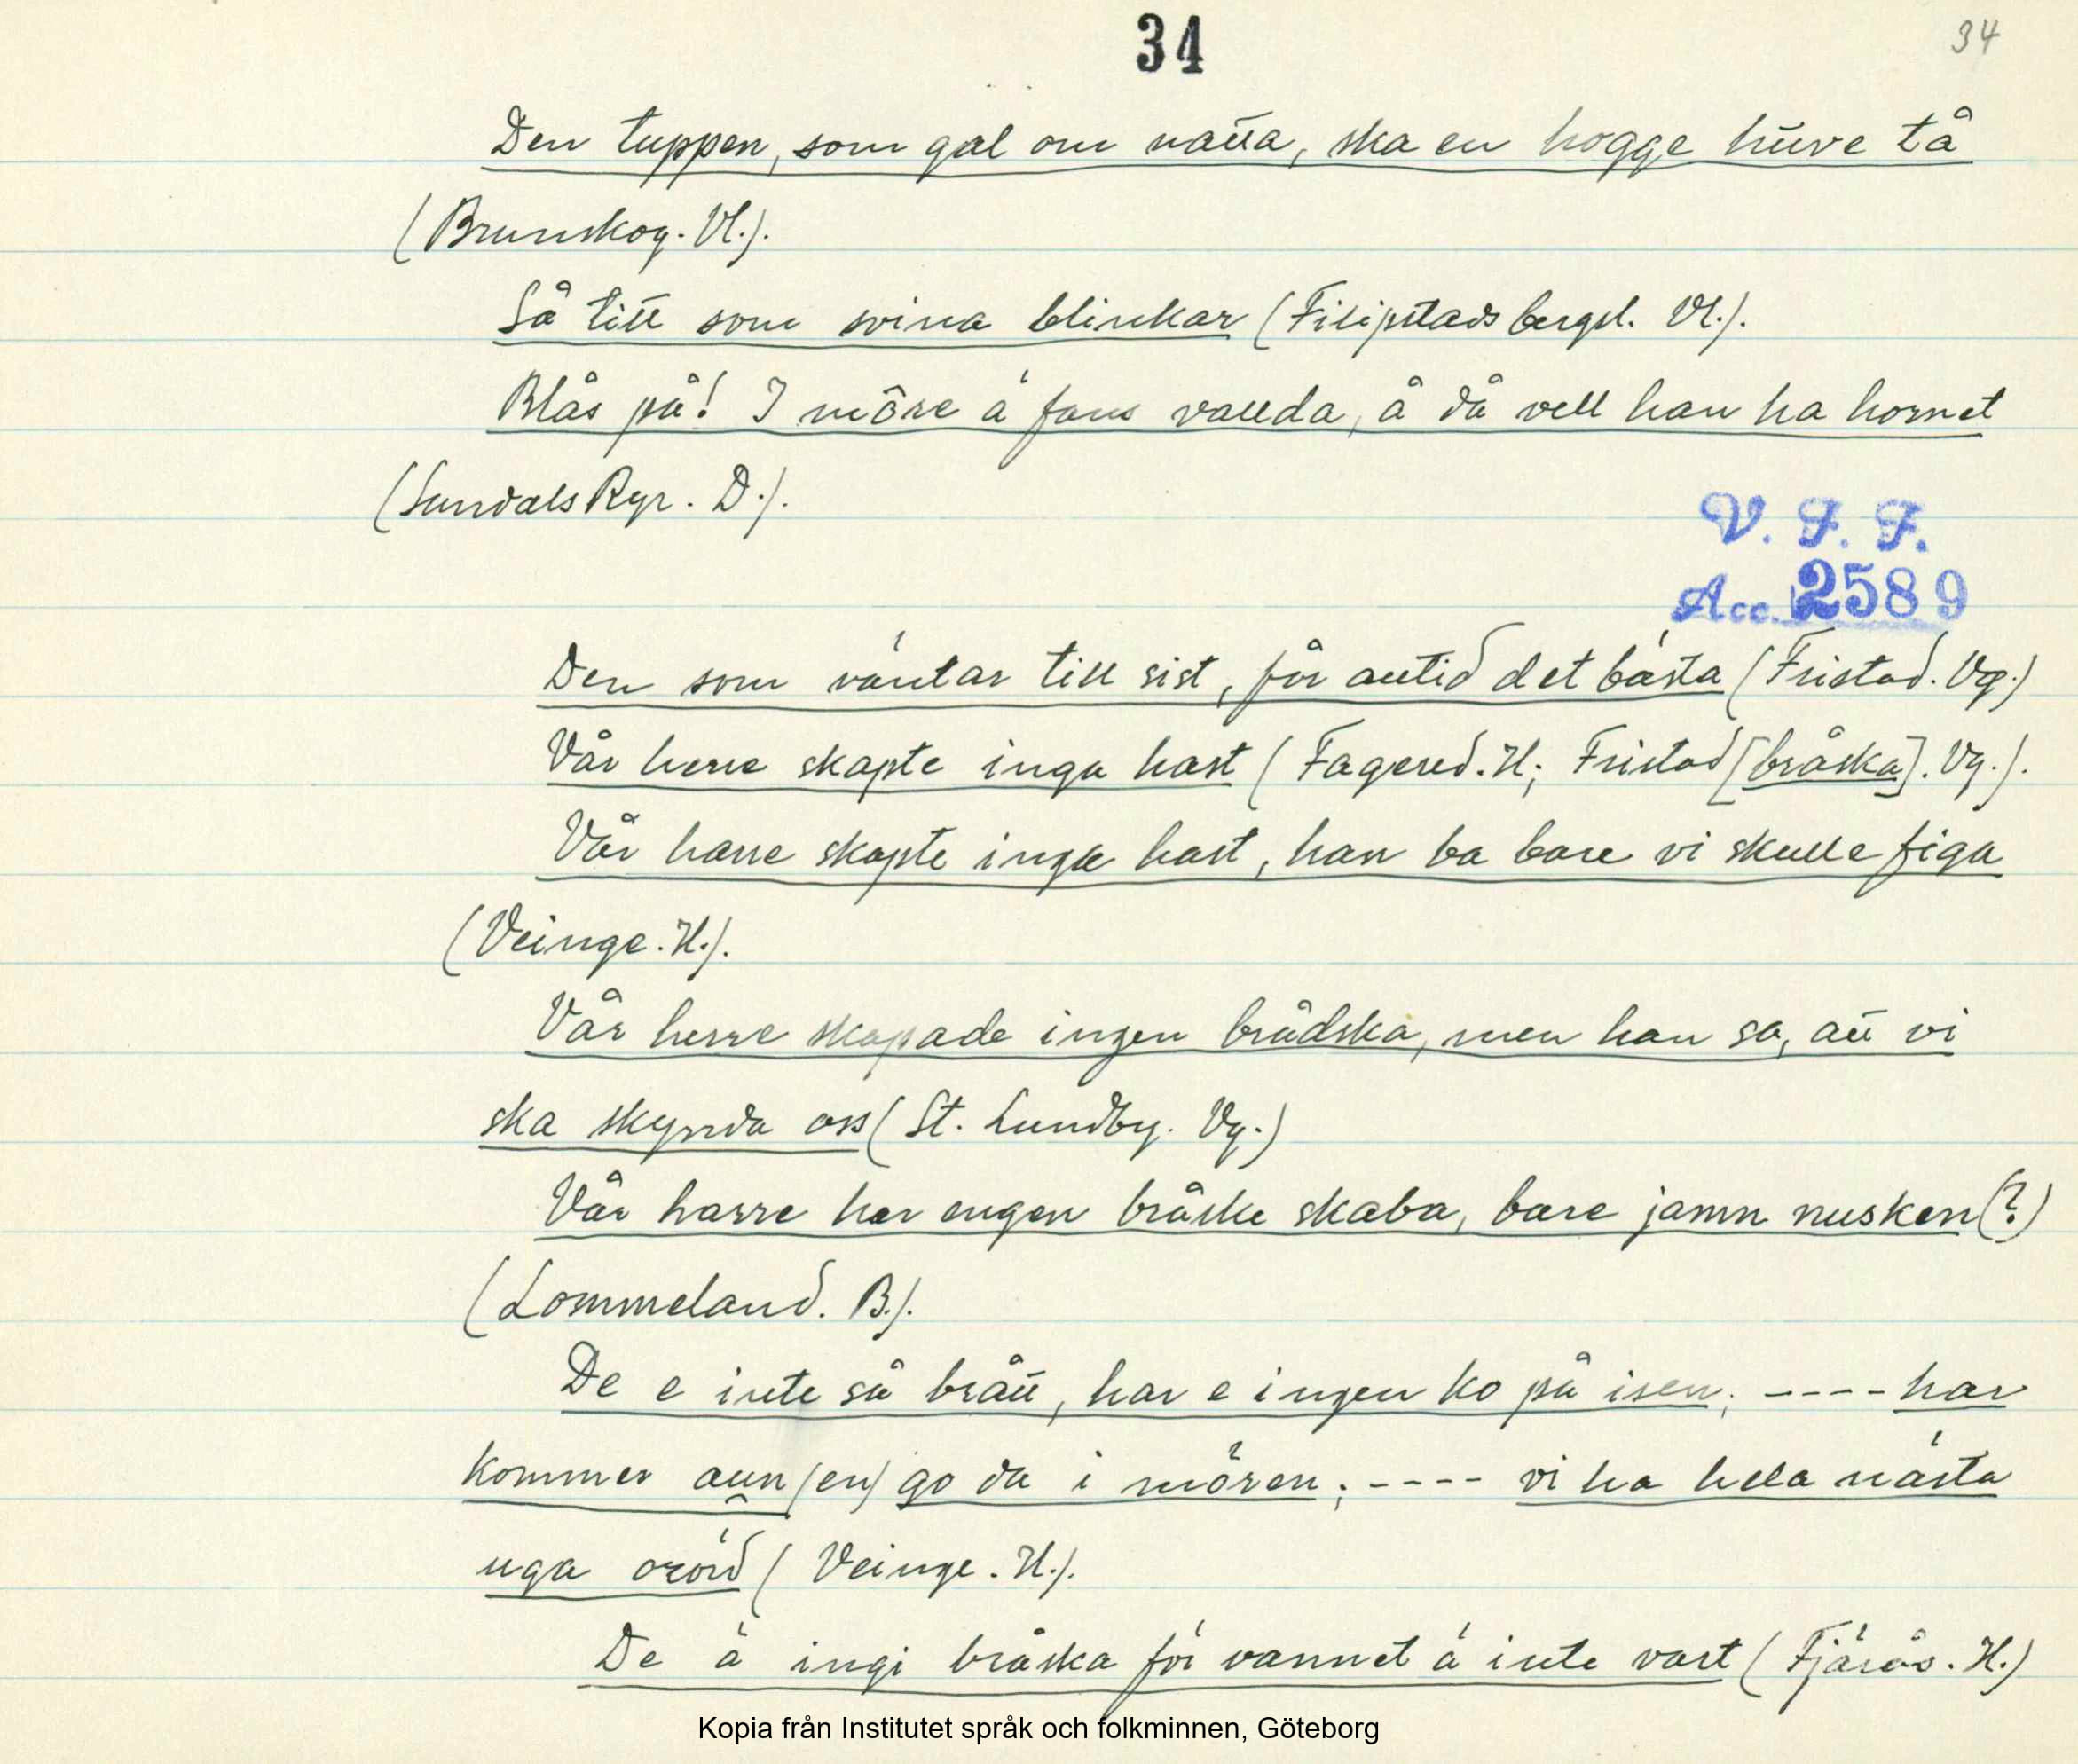 34
34
Den tuppen, som gal om natta, ska en hogge huve tå
(Brunskog. Vl.).
Så titt som svina blinkar (Filipstads bergsl. Vl.).
Blås på! I môre ä fans vallda, å då vell han ha hornet
(Sundals Ryr. D.).
V. F. F.
Acc. 2589
Den som väntar till sist, får alltid det bästa (Fristad. Vg.)
Vår herre skapte inga hast (Fagered. H; Fristad [bråska]. Vg.).
Vår harre skapte inga hast, han ba bare vi skulle figa
(Veinge. H.).
Vår herre skapade ingen brådska, men han sa, att vi
ska skynda oss (St. Lundby. Vg.)
Vår harre har engen bråske skaba, bare jamn nusken (?)
(Lommeland. B.).
De e inte så brått, har e ingen ko på isen; ---- har
kommer aun (en) go da i mören; ---- vi ha hela nästa
uga orörd (Veinge. H.).
De ä ingi bråska för vannet ä inte vart (Fjärås. H.)
Kopia från Institutet språk och folkminnen, Göteborg